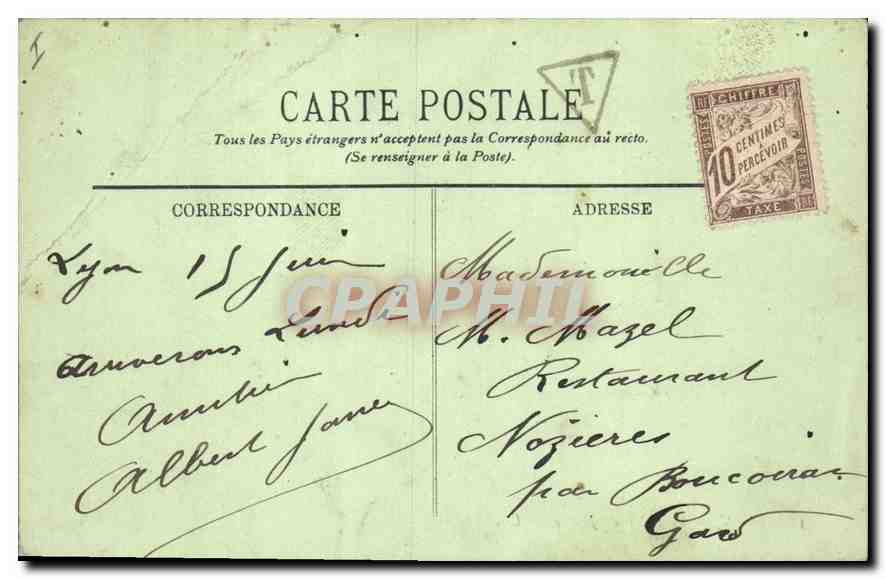 I
T
CARTE POSTALE
Tous les Pays étrangers n'acceptent pas la Correspondance au recto.
(Se renseigner à la Poste).
RF CHIFFRE
POSTES
10 CENTIMES
PERCEVOIR
POSTES
TAXE
CORRESPONDANCE
Lyon 15 Juin
arriverons Lundi
Albert
ADRESSE
Mademoiselle
M. Mazel
Restaurant
Nozières
par Boucoiran
Gard
CPAPHIL